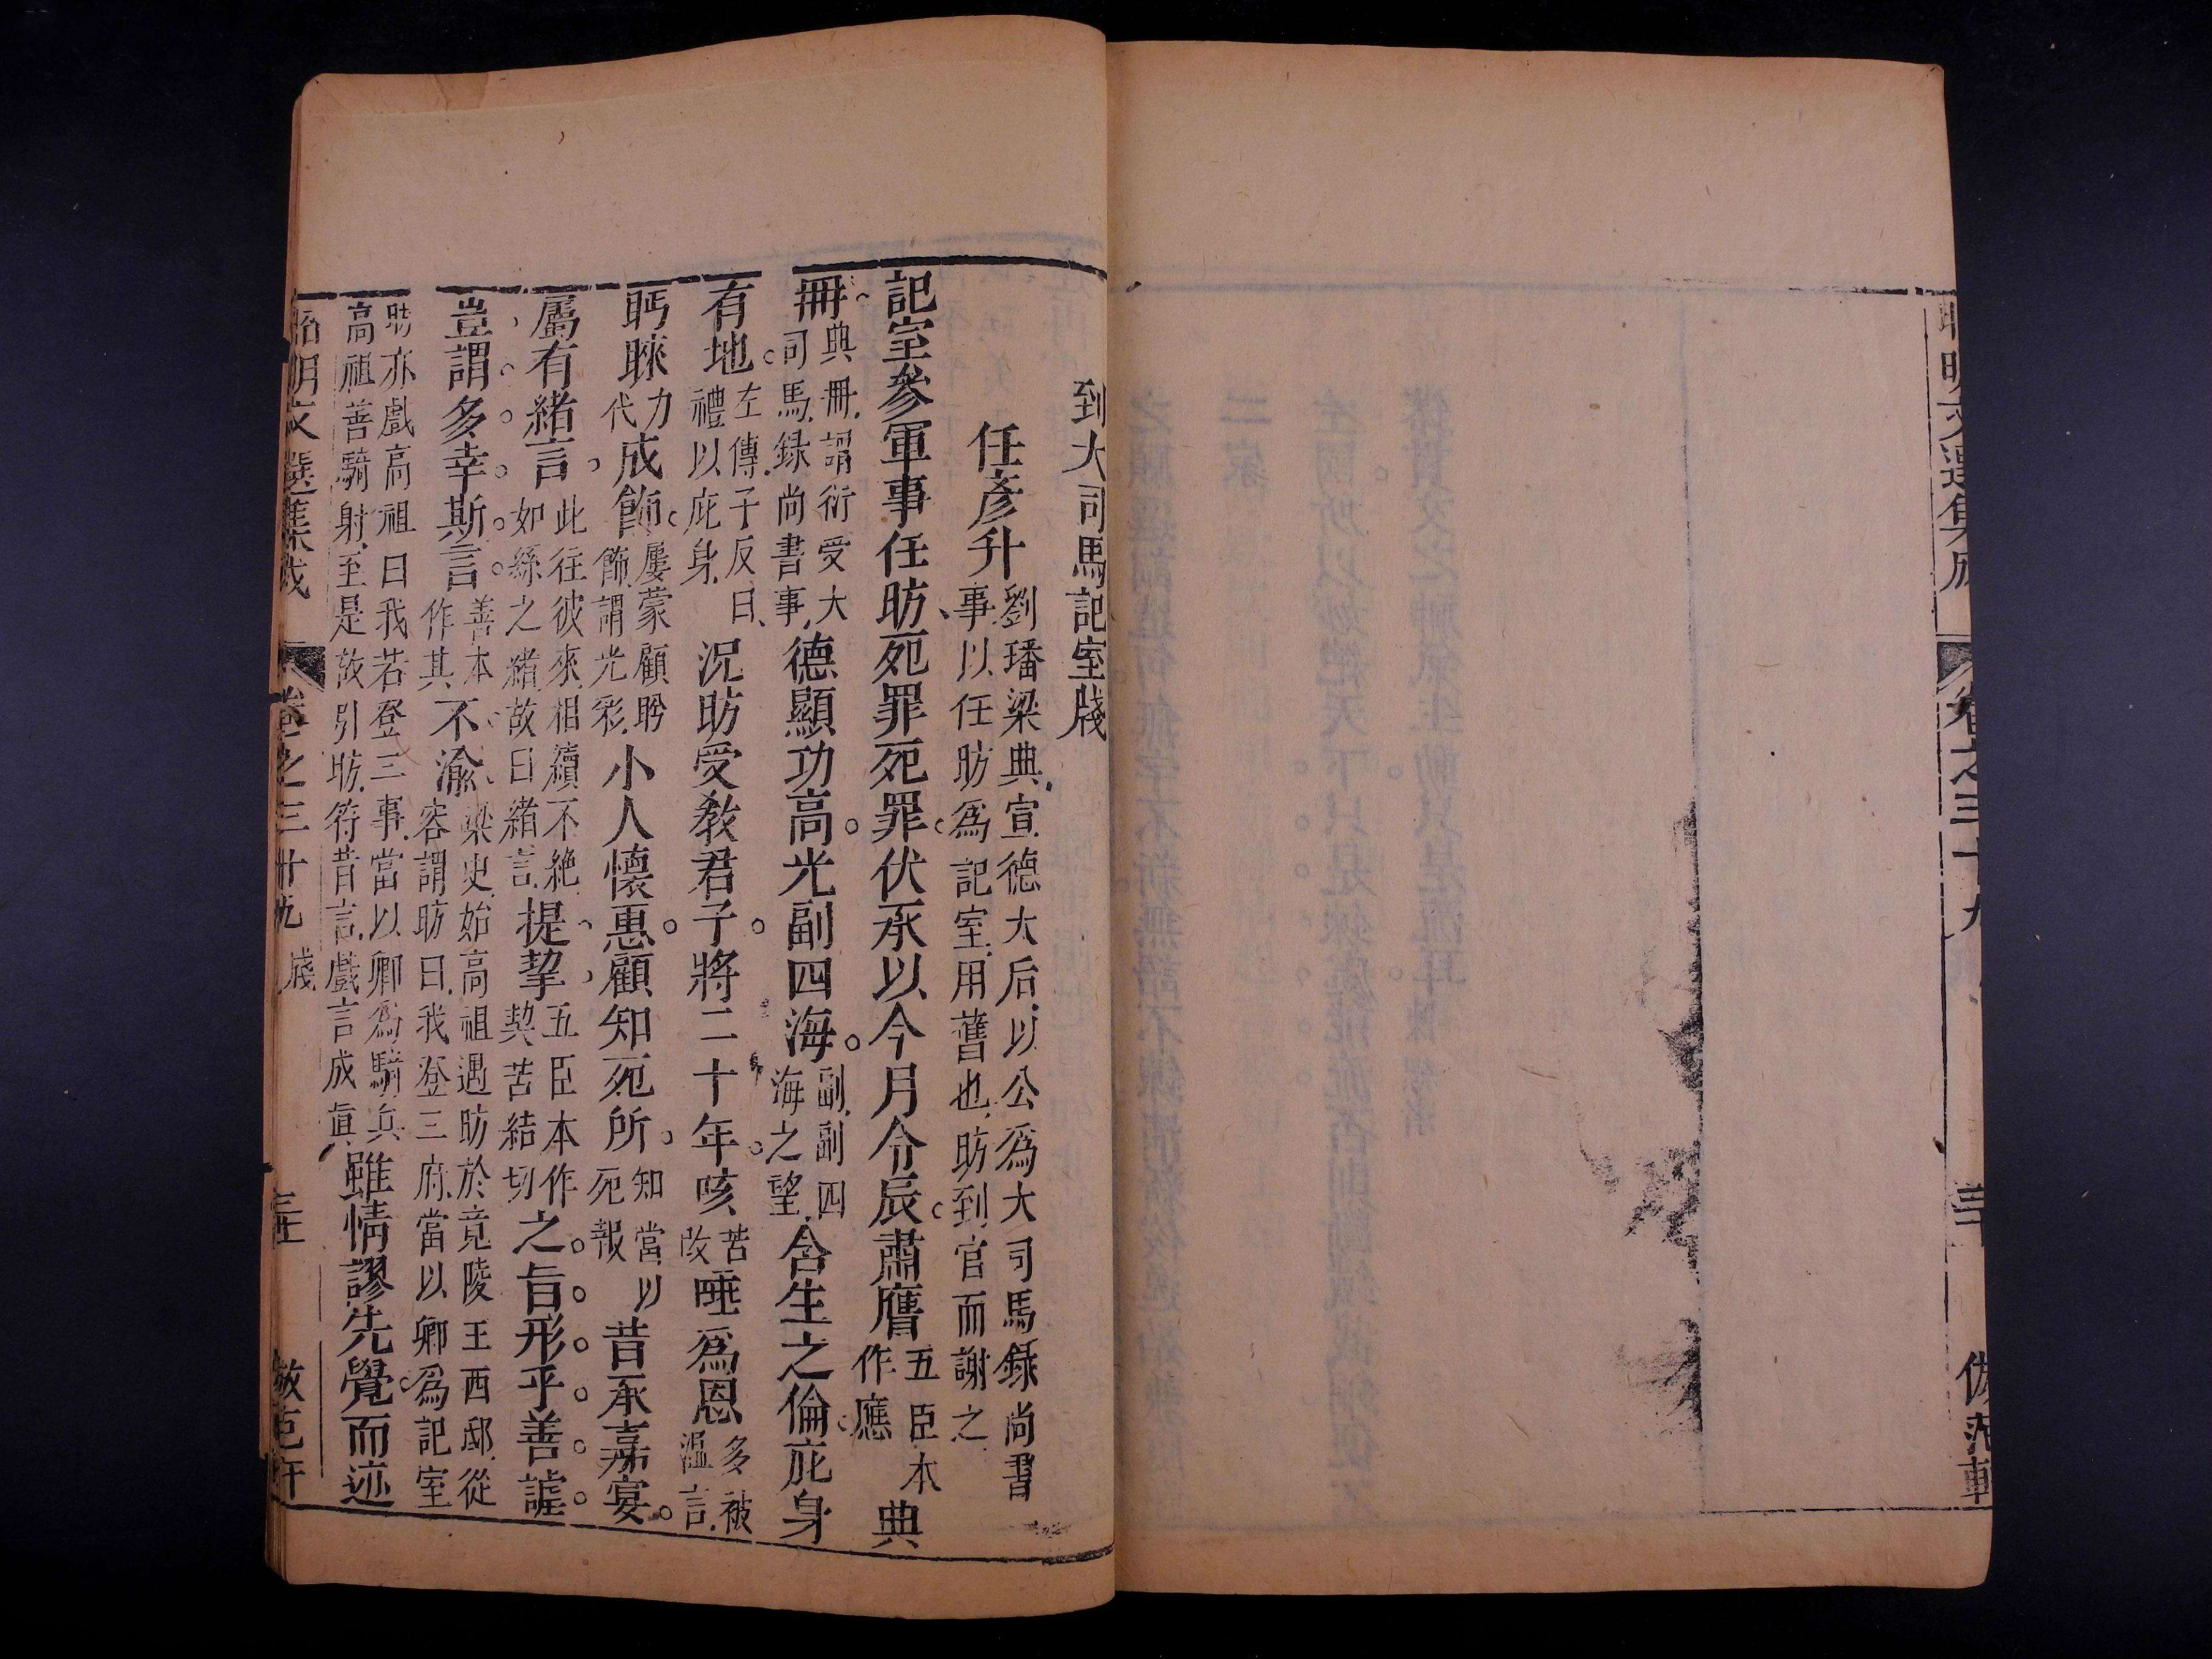 昭明文選集成 卷之三十九 三十 倣范軒
到大司馬記室牋
任彥升 劉璠梁典、宣德大后、以公爲大司馬錄尚書
事、以任昉爲記室、用舊也、昉到官而謝之
記室參軍事任昉死罪死罪。伏承以今月令辰。肅膺 五臣本作應 典
冊。 典冊、謂衍受大司馬、錄尚書事、 德顯功高。光副四海。 副、副四海之望、 含生之倫。庇身
有地。 左傳、子反曰、禮以庇身、 況昉受敎君子。將二十年。咳 苦改 唾爲恩 多被溫言、
眄睞 力代 成飾。 屢蒙顧盻飾、謂光彩、 小人懷惠。顧知死所。 知當以死報 昔承嘉宴。
屬有緒言。 此往彼來、相續不絶、如絲之緒、故曰緒言、 提挈 五臣本作契苦結切 之。旨。形。乎。善。謔。
豈謂。多。幸。斯。言。 善本作其 不渝 梁史、始高祖遇昉於竟陵王西邸、從容謂昉曰、我登三府、當以卿爲記室
昉亦戲高祖曰我若登三事、當以卿爲騎兵
高祖善騎射、至是故引昉、符昔言、戲言成眞、 雖情謬先覺。而迹
昭明文選集成 卷之三十九 牋 三十